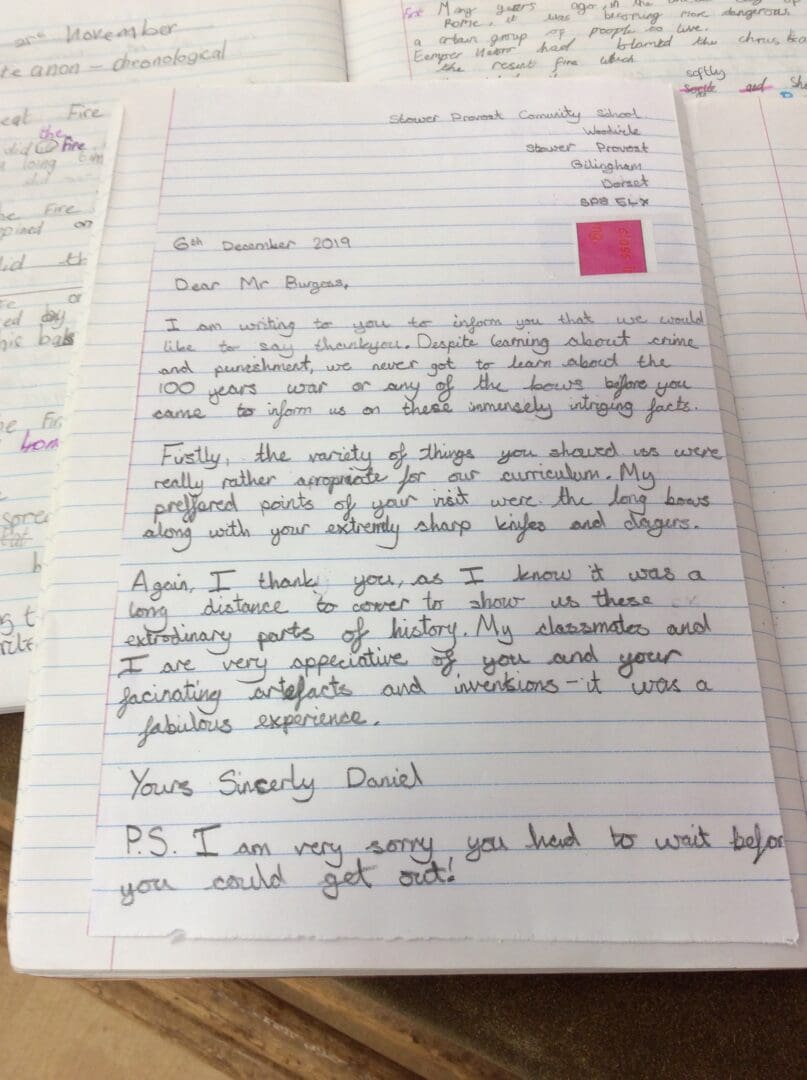 November
te anon - chronological
eat Fire
the
did Fire
a long
did
he Fire
on
did th
or
ed day
his bak
he Fir
spre
First Many years ago, in the
Rome, it was becoming more dangerous
a certain group of people to live.
had blamed the
the resent fire which
softly
and She
Stower Provost Comunity School
Stower Provost
Gilingham
Dorset
SP8 5LX
class
6th December 2019
Dear Mr Burgess,
I am writing to you to inform you that we would
like to say thankyou. Despite learning about crime
and punishment, we never got to learn about the
100 years war or any of the bows before you
came to inform us on these immensely intriging facts.
Firstly, the variety of things you showed us were
really rather apropriate for our curriculum. My
preffered points of your visit were the long bows
along with your extremly sharp knifes and dagers.
Again, I thank you, as I know it was a
long distance to cover to show us these
extrodinary parts of history. My classmates and
I are very appeciative of you and your
facinating artefacts and inventions - it was a
fabulous experience.
Yours Sincerly Daniel
P.S. I am very sorry you had to wait befor
you could get out!